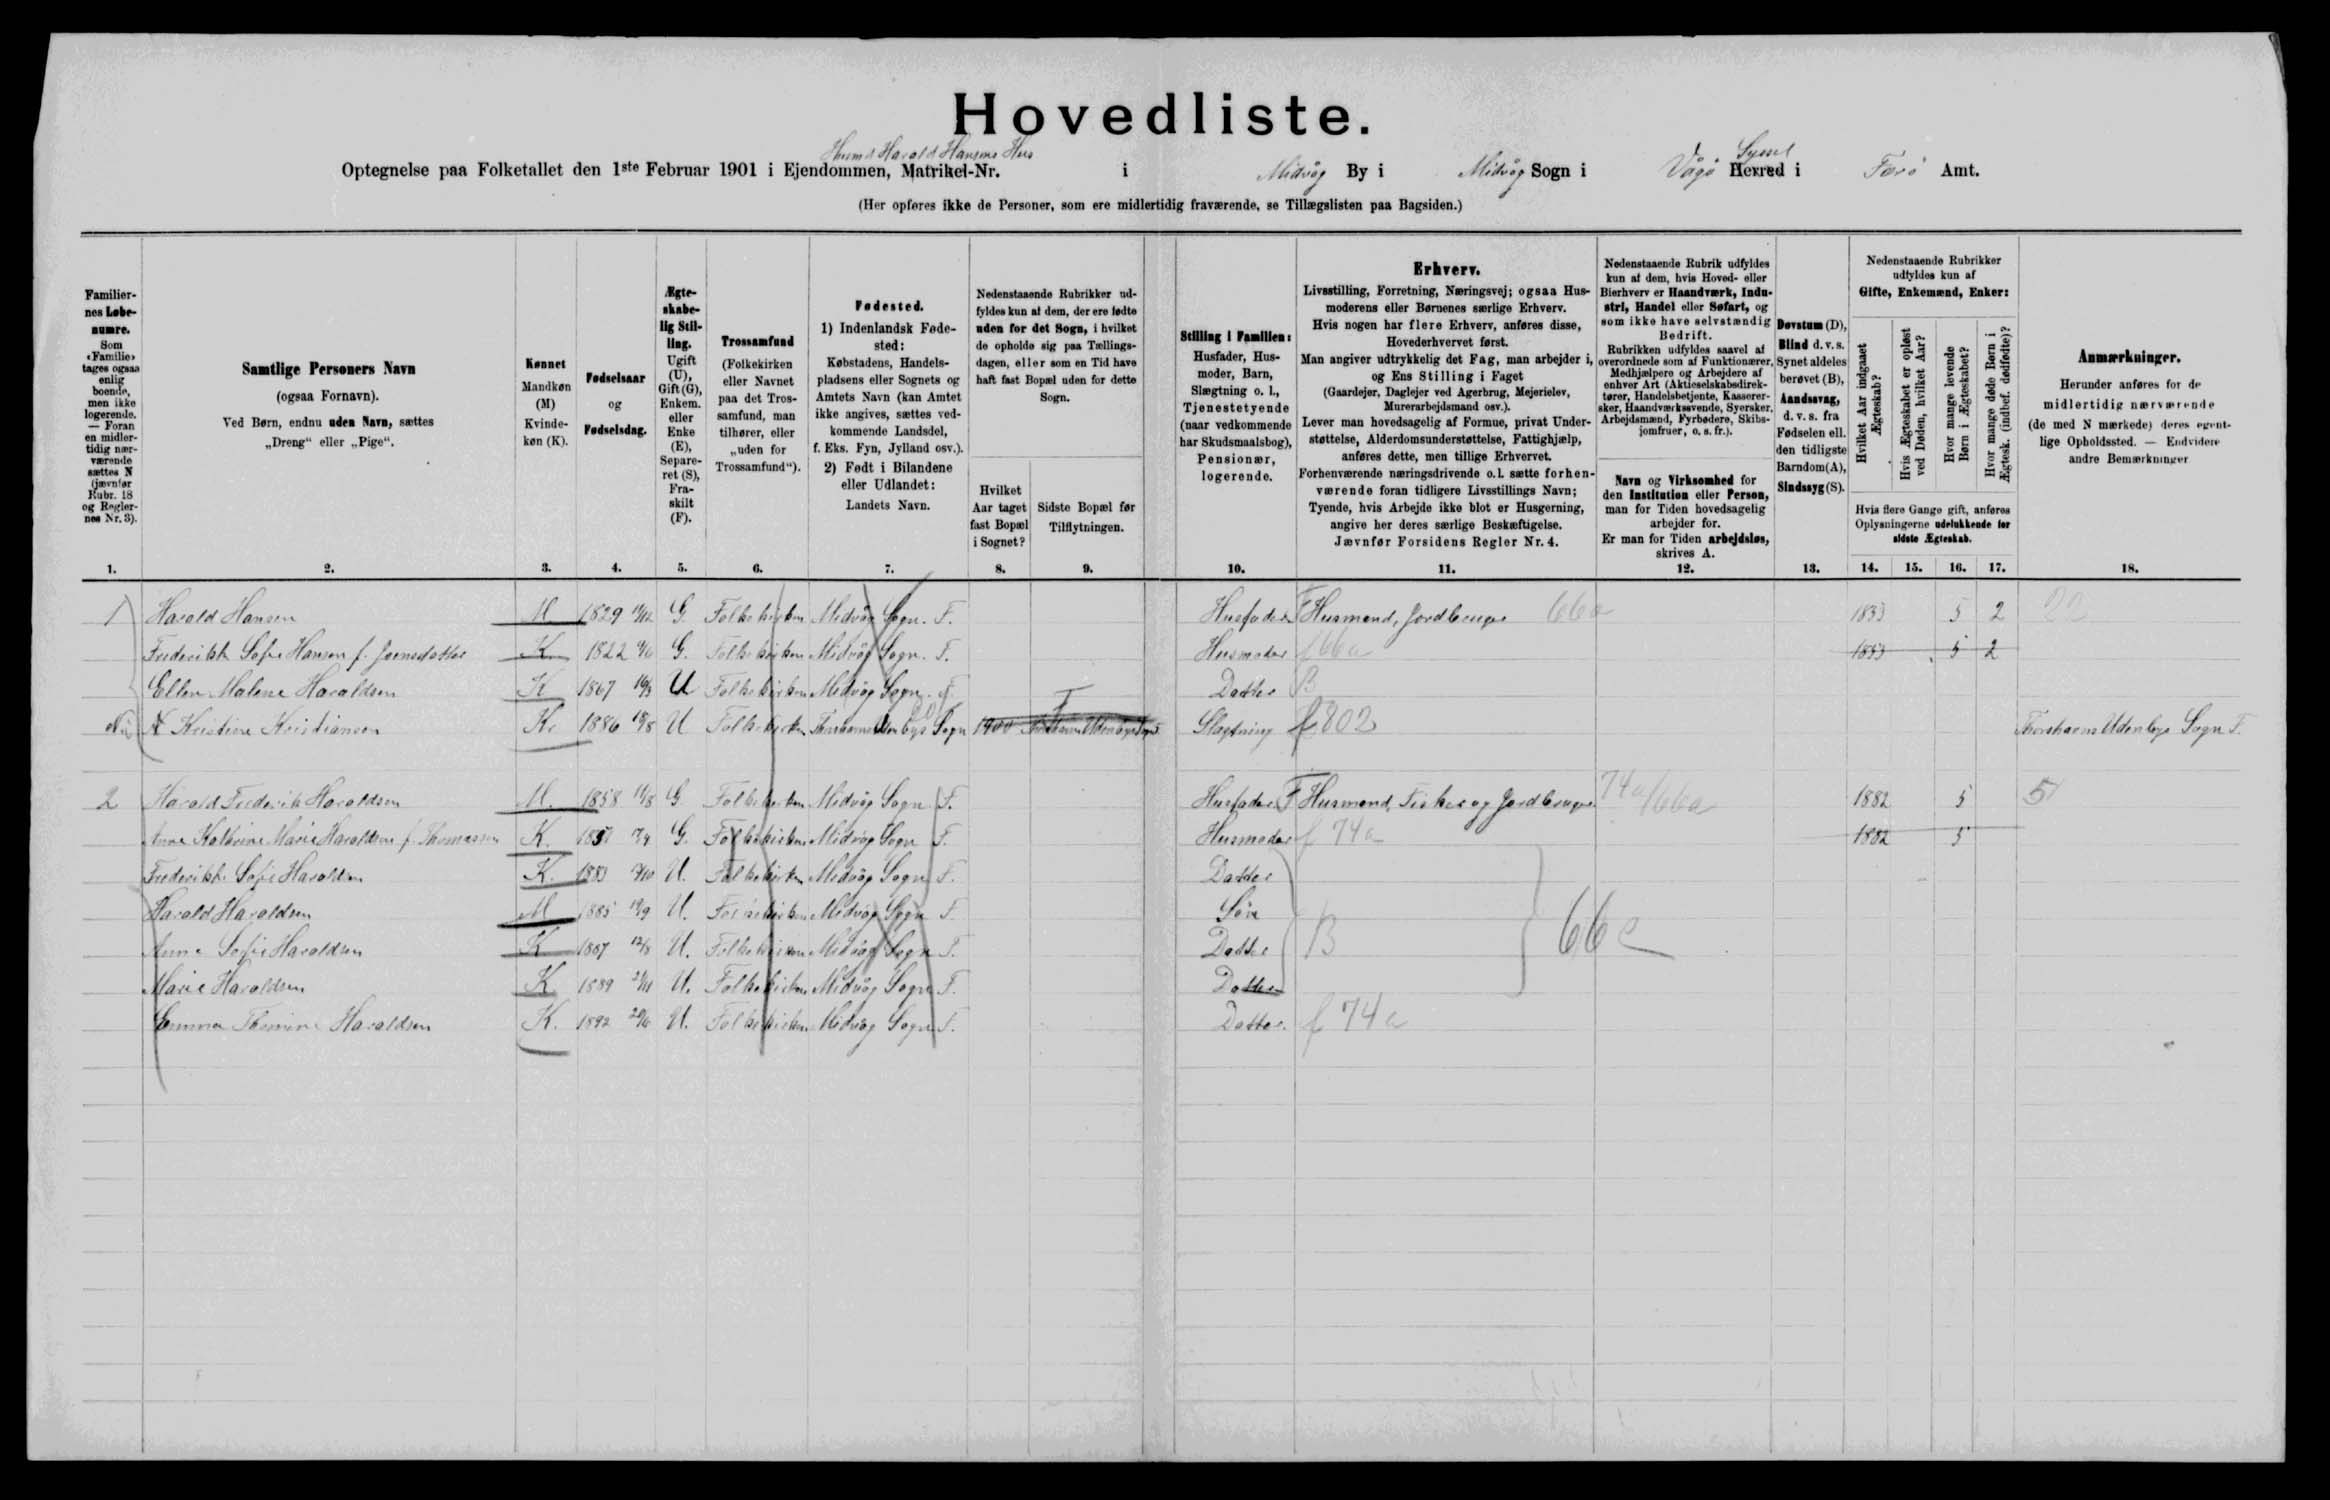 Hovedliste.
Husmd Harald Hansens Hus Sysel
Optegnelse paa Folketallet den 1ste Februar 1901 i Ejendommen, Matrikel-Nr. i Midvåg By i Midvåg Sogn i Vågø Herred i Færø Amt.
(Her opføres ikke de Personer, som ere midlertidig fraværende, se Tillægslisten paa Bagsiden.)
Familiernes Løbenumre.
Som «Familie» tages ogsaa enlig boende, men ikke logerende. — Foran en midlertidig nærværende sættes N (jævnfør Rubr. 18 og Reglernes Nr. 3).
Samtlige Personers Navn
(ogsaa Fornavn).
Ved Børn, endnu uden Navn, sættes
„Dreng“ eller „Pige“.
Kønnet
Mandkøn (M)
Kvindekøn (K).
Fødselsaar
og
Fødselsdag.
Ægteskabelig Stilling.
Ugift (U), Gift (G), Enkem. eller Enke (E), Separeret (S), Fraskilt (F).
Trossamfund
(Folkekirken eller Navnet paa det Trossamfund, man tilhører, eller „uden for Trossamfund“).
Fødested.
1) Indenlandsk Fødested:
Købstadens, Handelspladsens eller Sognets og Amtets Navn (kan Amtet ikke angives, sættes vedkommende Landsdel, f. Eks. Fyn, Jylland osv.).
2) Født i Bilandene eller Udlandet:
Landets Navn.
Nedenstaaende Rubrikker udfyldes kun af dem, der ere fødte uden for det Sogn, i hvilket de opholde sig paa Tællingsdagen, eller som en Tid have haft fast Bopæl uden for dette Sogn.
Hvilket Aar taget fast Bopæl i Sognet?
Sidste Bopæl før Tilflytningen.
Stilling i Familien:
Husfader, Husmoder, Barn, Slægtning o. l., Tjenestetyende (naar vedkommende har Skudsmaalsbog), Pensionær, logerende.
Erhverv.
Livsstilling, Forretning, Næringsvej; ogsaa Husmoderens eller Børnenes særlige Erhverv.
Hvis nogen har flere Erhverv, anføres disse, Hovederhvervet først.
Man angiver udtrykkelig det Fag, man arbejder i, og Ens Stilling i Faget
(Gaardejer, Daglejer ved Agerbrug, Mejerielev, Murerarbejdsmand osv.).
Lever man hovedsagelig af Formue, privat Understøttelse, Alderdomsunderstøttelse, Fattighjælp, anføres dette, men tillige Erhvervet.
Forhenværende næringsdrivende o.l. sætte forhenværende foran tidligere Livsstillings Navn;
Tyende, hvis Arbejde ikke blot er Husgerning, angive her deres særlige Beskæftigelse.
Jævnfør Forsidens Regler Nr. 4.
Nedenstaaende Rubrik udfyldes kun af dem, hvis Hoved- eller Bierhverv er Haandværk, Industri, Handel eller Søfart, og som ikke have selvstændig Bedrift.
Rubrikken udfyldes saavel af overordnede som af Funktionærer, Medhjælpere og Arbejdere af enhver Art (Aktieselskabsdirektører, Handelsbetjente, Kasserersker, Haandværkssvende, Syersker, Arbejdsmænd, Fyrbødere, Skibsjomfruer, o. s. fr.).
Navn og Virksomhed for den Institution eller Person, man for Tiden hovedsagelig arbejder for.
Er man for Tiden arbejdsløs, skrives A.
Døvstum (D), Blind d. v. s. Synet aldeles berøvet (B), Aandssvag, d. v. s. fra Fødselen ell. den tidligste Barndom (A), Sindssyg (S).
Nedenstaaende Rubrikker udfyldes kun af
Gifte, Enkemænd, Enker:
Hvilket Aar indgaaet Ægteskab?
Hvis Ægteskabet er opløst ved Døden, hvilket Aar?
Hvor mange levende Børn i Ægteskabet?
Hvor mange døde Børn i Ægtesk. (indbef. dødfødte)?
Hvis flere Gange gift, anføres Oplysningerne udelukkende for sidste Ægteskab.
Anmærkninger.
Herunder anføres for de midlertidig nærværende (de med N mærkede) deres egentlige Opholdssted. — Endvidere andre Bemærkninger
1. 2. 3. 4. 5. 6. 7. 8. 9. 10. 11. 12. 13. 14. 15. 16. 17. 18.
1 Harald Hansen M. 1829 G. Folkekirken Midvåg Sogn. F. Husfader F Husmand, Jordbruger 66a 1853 5 2
Frederikke Sofie Hansen f. Joensdatter K 1822 G. Folkekirken Midvåg Sogn. F. Husmoder f 66a 1853 5 2
Ellen Malene Haraldsen K 1867 16/3 U Folkekirken Midvåg Sogn. F. Datter B
N Kristine Kristiansen K. 1886 18/8 U Folkekirken Thorshavns Udenbys Sogn 1900 Thorshavns Udenbys Sogn F Slægtning f 802 Thorshavns Udenbys Sogn F.
2 Harald Frederik Haraldsen M. 1858 11/8 G. Folkekirken Midvåg Sogn F. Husfader F Husmand, Fisker og Jordbruger 74a/66a 1882 5 5
Anne Kathrine Marie Haraldsen f. Thomassen K. 7/4 G. Folkekirken Midvåg Sogn F. Husmoder f 74a 1882 5
Frederikke Sofie Haraldsen K. 1883 U. Folkekirken Midvåg Sogn F. Datter
Harald Haraldsen M 1885 19/9 U. Folkekirken Midvåg Sogn F. Søn
Anne Sofie Haraldsen K 1887 12/8 U. Folkekirken Midvåg Sogn F. Datter B 66c
Marie Haraldsen K 1889 U. Folkekirken Midvåg Sogn F. Datter
Emma Thomine Haraldsen K. 1892 20/6 U. Folkekirken Midvåg Sogn F. Datter. f 74a